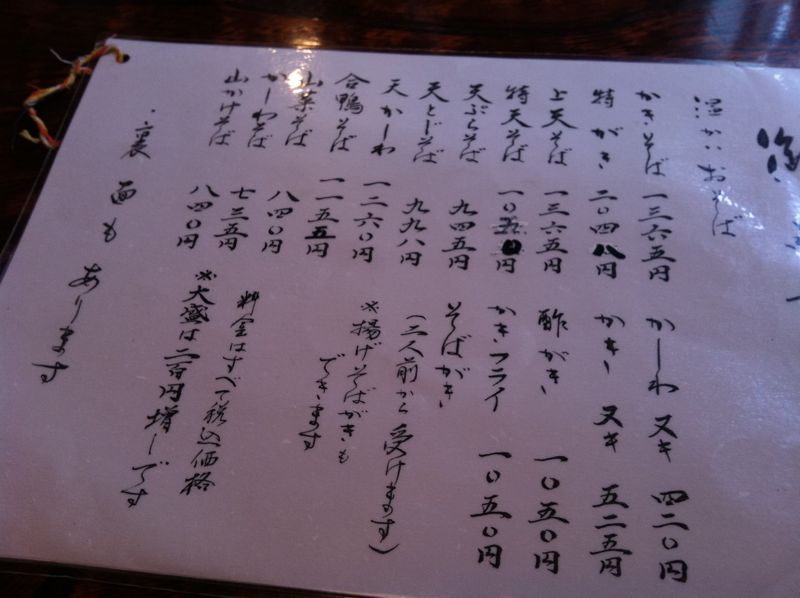 温かいおそば
かきそば 一三六五円
特がき 二〇四八円
上天そば 一三六五円
特天そば 一〇五〇円
天ぷらそば 九四五円
天とじそば 九九八円
天かしわ 一二六〇円
合鴨そば 一一五五円
山菜そば 八四〇円
かしわそば 七三五円
山かけそば 八四〇円
かしわヌキ 四二〇円
かきヌキ 五二五円
酢がき 一〇五〇円
かきフライ 一〇五〇円
そばがき
(二人前から受けます)
※揚げそばがきも
できます
料金はすべて税込価格
※大盛は二百円増しです
・裏面もあります